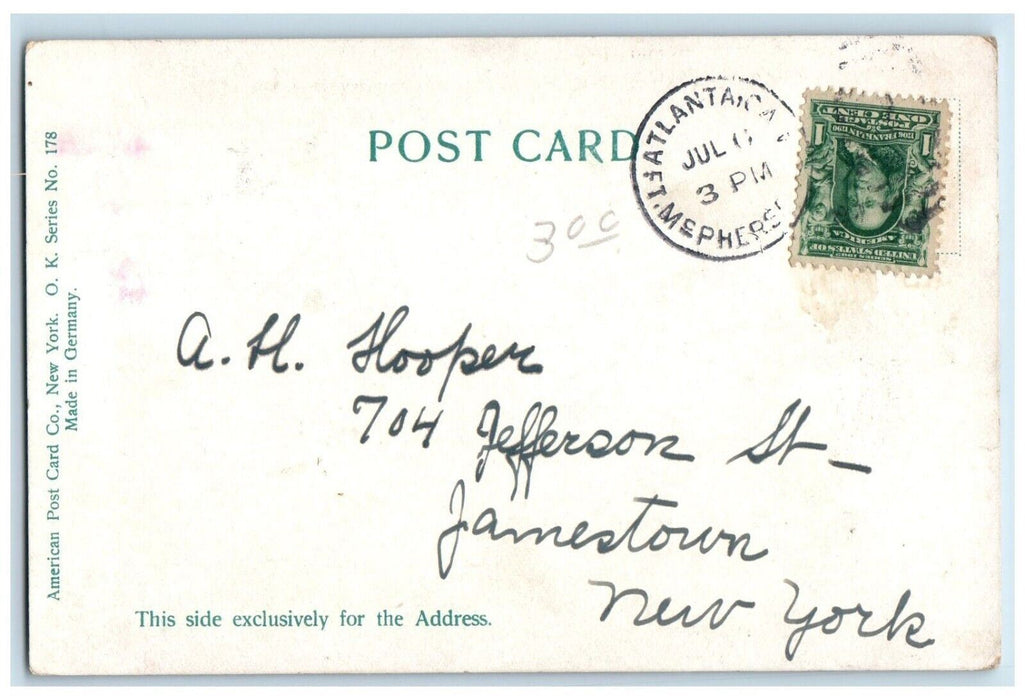 American Post Card Co., New York. O. K. Series No. 178
Made in Germany.
POST CARD
ATLANTA, GA
JUL
3 PM
FT. McPHERS
1
ONE CENT
POSTAGE
UNITED STATES OF
AMERICA
SERIES 1902
3 00
A. H. Hooper
704 Jefferson St
Jamestown
New York
This side exclusively for the Address.